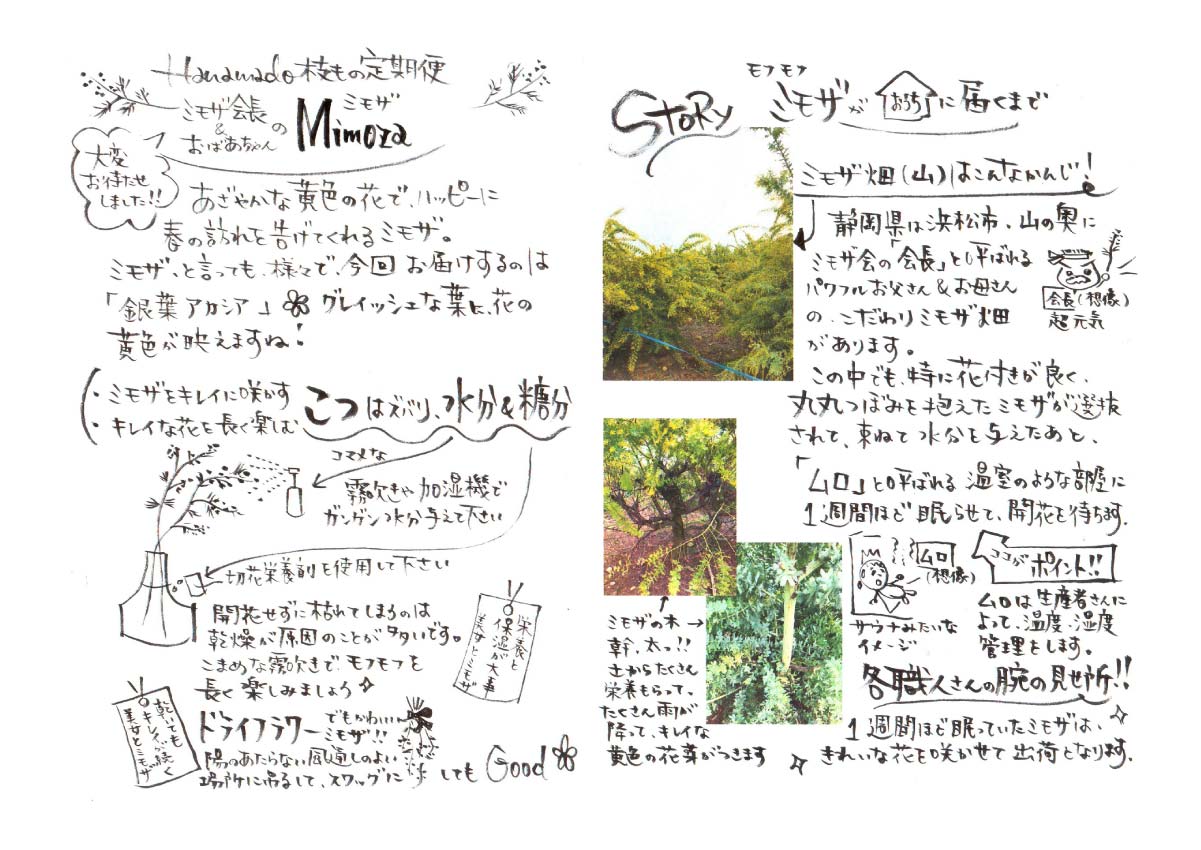 Hanamado 枝もの定期便
ミモザ会長
&
おばあちゃん
の
ミモザ
Mimoza
大変
お待たせ
しました!!
あざやかな黄色の花で、ハッピーに
春の訪れを告げてくれるミモザ。
ミモザ、と言っても、様々で、今回 お届けするのは
「銀葉アカシア」 グレイッシュな葉に、花の
黄色が映えますね!
・ミモザをキレイに咲かす
・キレイな花を長く楽しむ
こつはズバリ、水分&糖分
コマメな
霧吹きや加湿機で
ガンガン水分与えて下さい
切花栄養剤を使用して下さい
開花せずに枯れてしまうのは
乾燥が原因のことが多いです。
こまめな霧吹きで、モフモフを
長く楽しみましょう
栄養と
保湿が大事
美女とミモザ
乾いても
キレイが続く
美女とミモザ
ドライフラワーでもかわいい
ミモザ!!
陽のあたらない風通しのよい
場所に吊るして、スワッグに してもGood
STORY
モフモフ
ミモザが おうちに届くまで
ミモザ畑(山)はこんなかんじ!
静岡県は浜松市、山の奥に
ミモザ会の「会長」と呼ばれる
パワフルお父さん&お母さん
の、こだわりミモザ畑
があります。
会長(想像)
超元気
この中でも、特に花付きが良く、
丸丸つぼみを抱えたミモザが選抜
されて、束ねて水分を与えたあと、
「ムロ」と呼ばれる温室のような部屋に
1週間ほど眠らせて、開花を待ちます.
ムロ
(想像)
サウナみたいな
イメージ
ココがポイント!!
ムロは生産者さんに
よって、温度、湿度
管理をします。
各職人さんの腕の見せ所!!
1週間ほど眠っていたミモザは、
きれいな花を咲かせて出荷となります.
ミモザの木→
幹、太っ!!
土からたくさん
栄養もらって、
たくさん雨が
降って、キレイな
黄色の花芽がつきます